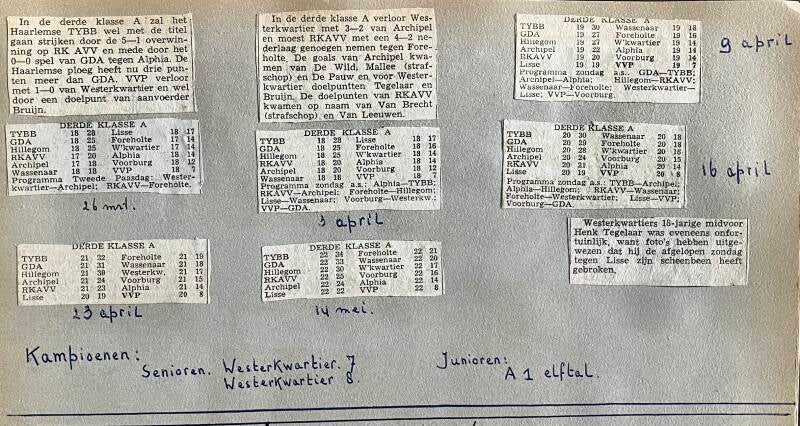 In de derde klasse A zal het
Haarlemse TYBB wel met de titel
gaan strijken door de 5—1 overwin-
ning op RK AVV en mede door het
0—0 spel van GDA tegen Alphia. De
Haarlemse ploeg heeft nu drie pun-
ten meer dan GDA. VVP verloor
met 1—0 van Westerkwartier en wel
door een doelpunt van aanvoerder
Bruijn.
DERDE KLASSE A
TYBB 18 28 Lisse 18 17
GDA 18 25 Foreholte 17 14
Hillegom 18 25 W'kwartier 17 14
RKAVV 17 20 Alphia 18 14
Archipel 17 19 Voorburg 18 12
Wassenaar 18 18 VVP 18 7
Programma Tweede Paasdag: Wester-
kwartier—Archipel; RKAVV—Foreholte.
26 mrt.
In de derde klasse A verloor Wes-
terkwartier met 3—2 van Archipel
en moest RKAVV met een 4—2 ne-
derlaag genoegen nemen tegen Fore-
holte. De goals van Archipel kwa-
men van De Wild, Mallee (straf-
schop) en De Pauw en voor Wester-
kwartier doelpuntten Tegelaar en
Bruijn. De doelpunten van RKAVV
kwamen op naam van Van Brecht
(strafschop) en Van Leeuwen.
DERDE KLASSE A
TYBB 18 28 Lisse 18 17
GDA 18 25 Foreholte 18 16
Hillegom 18 25 W'kwartier 18 14
Archipel 18 21 Alphia 18 14
RKAVV 18 20 Voorburg 18 12
Wassenaar 18 18 VVP 18 7
Programma zondag a.s.: Alphia—TYBB;
RKAVV—Archipel; Foreholte—Hillegom;
Lisse—Wassenaar; Voorburg—Westerkw.;
VVP—GDA.
3 april
DERDE KLASSE A
TYBB 19 30 Wassenaar 19 18
GDA 19 27 Foreholte 19 16
Hillegom 19 27 W'kwartier 19 14
Archipel 19 22 Alphia 19 14
RKAVV 19 21 Voorburg 19 14
Lisse 19 19 VVP 19 7
Programma zondag a.s.: GDA—TYBB;
Archipel—Alphia; Hillegom—RKAVV;
Wassenaar—Foreholte; Westerkwartier—
Lisse; VVP—Voorburg.
9 april
DERDE KLASSE A
TYBB 20 30 Wassenaar 20 18
GDA 20 29 Foreholte 20 18
Hillegom 20 28 W'kwartier 20 16
Archipel 20 24 Voorburg 20 15
RKAVV 20 22 Alphia 20 14
Lisse 20 19 VVP 20 8
Programma zondag a.s.: TYBB—Archipel;
Alphia—Hillegom; RKAVV—Wassenaar;
Foreholte—Westerkwartier; Lisse—VVP;
Voorburg—GDA.
16 april
Westerkwartiers 18-jarige midvoor
Henk Tegelaar was eveneens onfor-
tuinlijk, want foto's hebben uitge-
wezen dat hij de afgelopen zondag
tegen Lisse zijn scheenbeen heeft
gebroken.
DERDE KLASSE A
TYBB 21 32 Foreholte 21 19
GDA 21 31 Wassenaar 21 18
Hillegom 21 30 Westerkw. 21 17
Archipel 21 24 Voorburg 21 15
RKAVV 21 23 Alphia 21 14
Lisse 20 19 VVP 20 8
23 april
DERDE KLASSE A
TYBB 22 34 Foreholte 22 21
GDA 22 33 Wassenaar 22 20
Hillegom 22 30 W'kwartier 22 17
RKAVV 22 24 Voorburg 22 16
Archipel 22 24 Alphia 22 14
Lisse 22 22 VVP 22 8
14 mei.
Kampioenen:
Senioren. Westerkwartier. 7
Westerkwartier 8.
Junioren:
A 1 elftal.